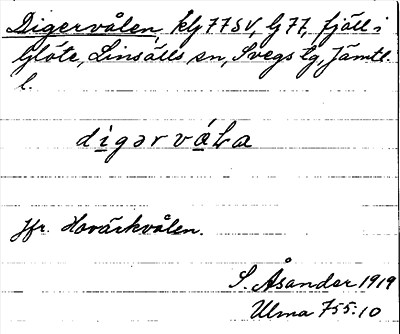 Digervålen, kG 77SV, G 77, fjäll i
Glöte, Linsälls sn, Svegs tg, Jämtl.
l.
digərvåLa
Jfr. Havärkvålen.
S. Åsander 1919
Ulma 755:10